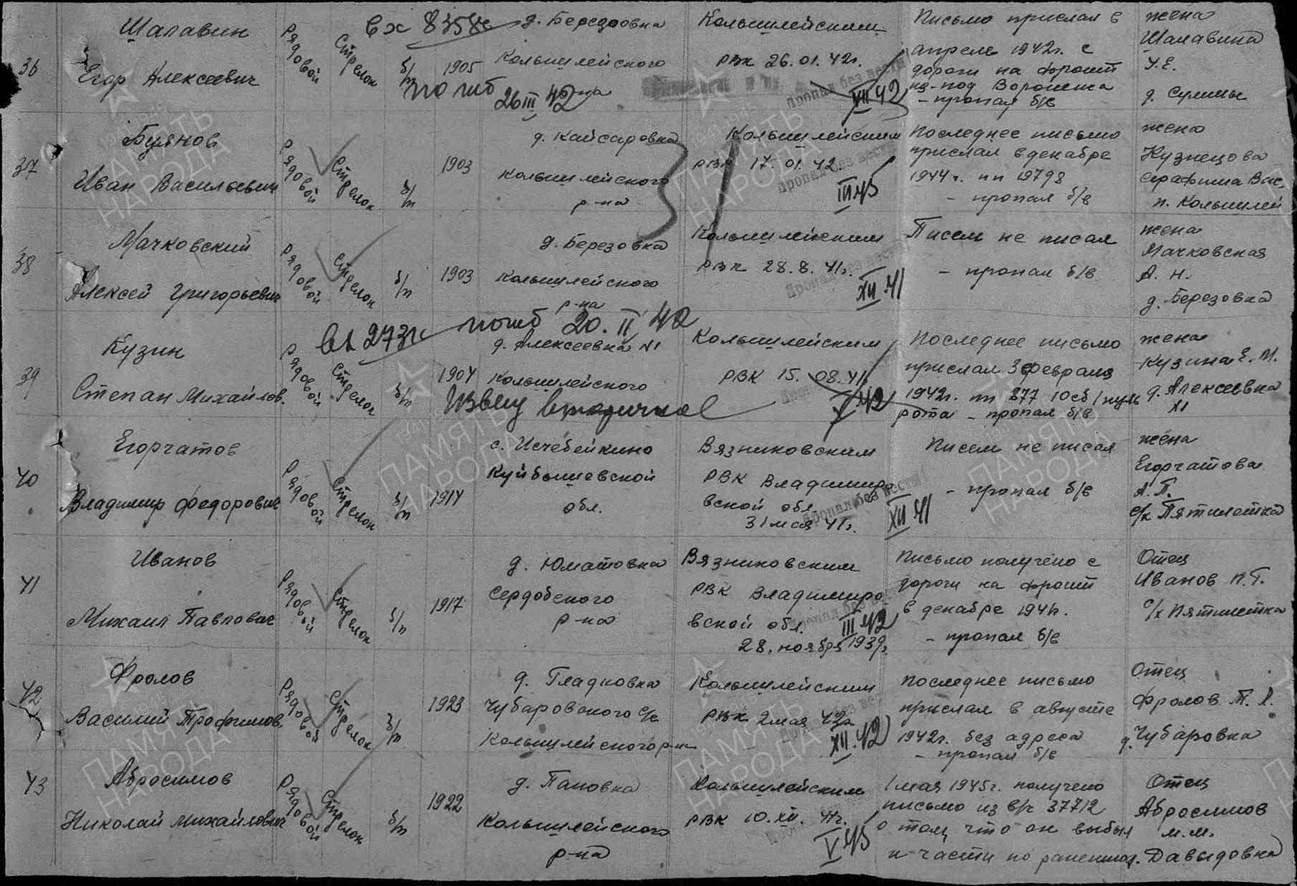 36
Шалавин
Егор Алексеевич
Рядовой
Стрелок
б/п
вх 8358с
1905
погиб
26 III 42
д. Березовка
Колышлейского
Колышлейским
РВК 26.01.42г.
Пропал без вести
VII 42
Письмо прислал в
апреле 1942г. с
дороги на фронт
из-под Воронежа
- пропал б/в
жена
Шалавина
У.Е.
37
Буянов
Иван Васильевич
Рядовой
Стрелок
б/п
1903
д. Кайсаровка
Колышлейского
р-на
Колышлейским
РВК 17.01.42
Пропал без вести
III 45
Последнее письмо
прислал в декабре
1944г. пп 19798
- пропал б/в
жена
Кузнецова
Серафима Вас.
п. Колышлей
38
Мачковский
Алексей Григорьевич
Рядовой
Стрелок
б/п
1903
д. Березовка
Колышлейского
р-на
Колышлейским
РВК 28.8.41г.
Пропал без вести
XII 41
Писем не писал
- пропал б/в
жена
Мачковская
А. Н.
д. Березовка
39
Кузин
Степан Михайлов.
Рядовой
Стрелок
б/п
погиб 20. II 42
1904
д. Алексеевка №1
Колышлейского
Извещ вторичное
Колышлейским
РВК 15.08.41
V 42
Последнее письмо
прислал 3 февраля
1942г. пп 877 10сб 1 пуль
рота - пропал б/в
жена
Кузина Е. М.
д. Алексеевка
№1
40
Егорчатов
Владимир Федорович
Рядовой
Стрелок
б/п
1914
Куйбышевской
обл.
Вязниковским
РВК Владимиро
вской обл.
31 мая 41г.
Пропал без вести
XII 41
Писем не писал
- пропал б/в
жена
Егорчатова
А.Г.
с/х Пятилетка
41
Иванов
Михаил Павлович
Рядовой
Стрелок
б/п
1917
д. Юматовка
Сердобского
р-на
Вязниковским
РВК Владимиро
вской обл.
28. ноября 1939г.
Пропал без вести
III 42
Письмо получено с
дороги на фронт
в декабре 1941г.
- пропал б/в
Отец
Иванов П.Г.
с/х Пятилетка
42
Фролов
Василий Трофимов
Рядовой
Стрелок
б/п
1923
д. Гладковка
Чубаровского с/с
Колышлейского р-на
Колышлейским
РВК 2 мая 42г
XII 42
Последнее письмо
прислал в августе
1942г. без адреса
- пропал б/в
Отец
Фролов Т. Л.
д. Чубаровка
43
Абросимов
Николай Михайлович
Рядовой
Стрелок
б/п
1922
д. Пановка
Колышлейского
р-на
Колышлейским
РВК 10.XII.41г.
V 45
1 мая 1945г. получено
письмо из в/ч 37712
о том, что он выбыл
из части по ранению
Отец
Абросимов
М.М.
д. Давыдовка
ПАМЯТЬ
НАРОДА